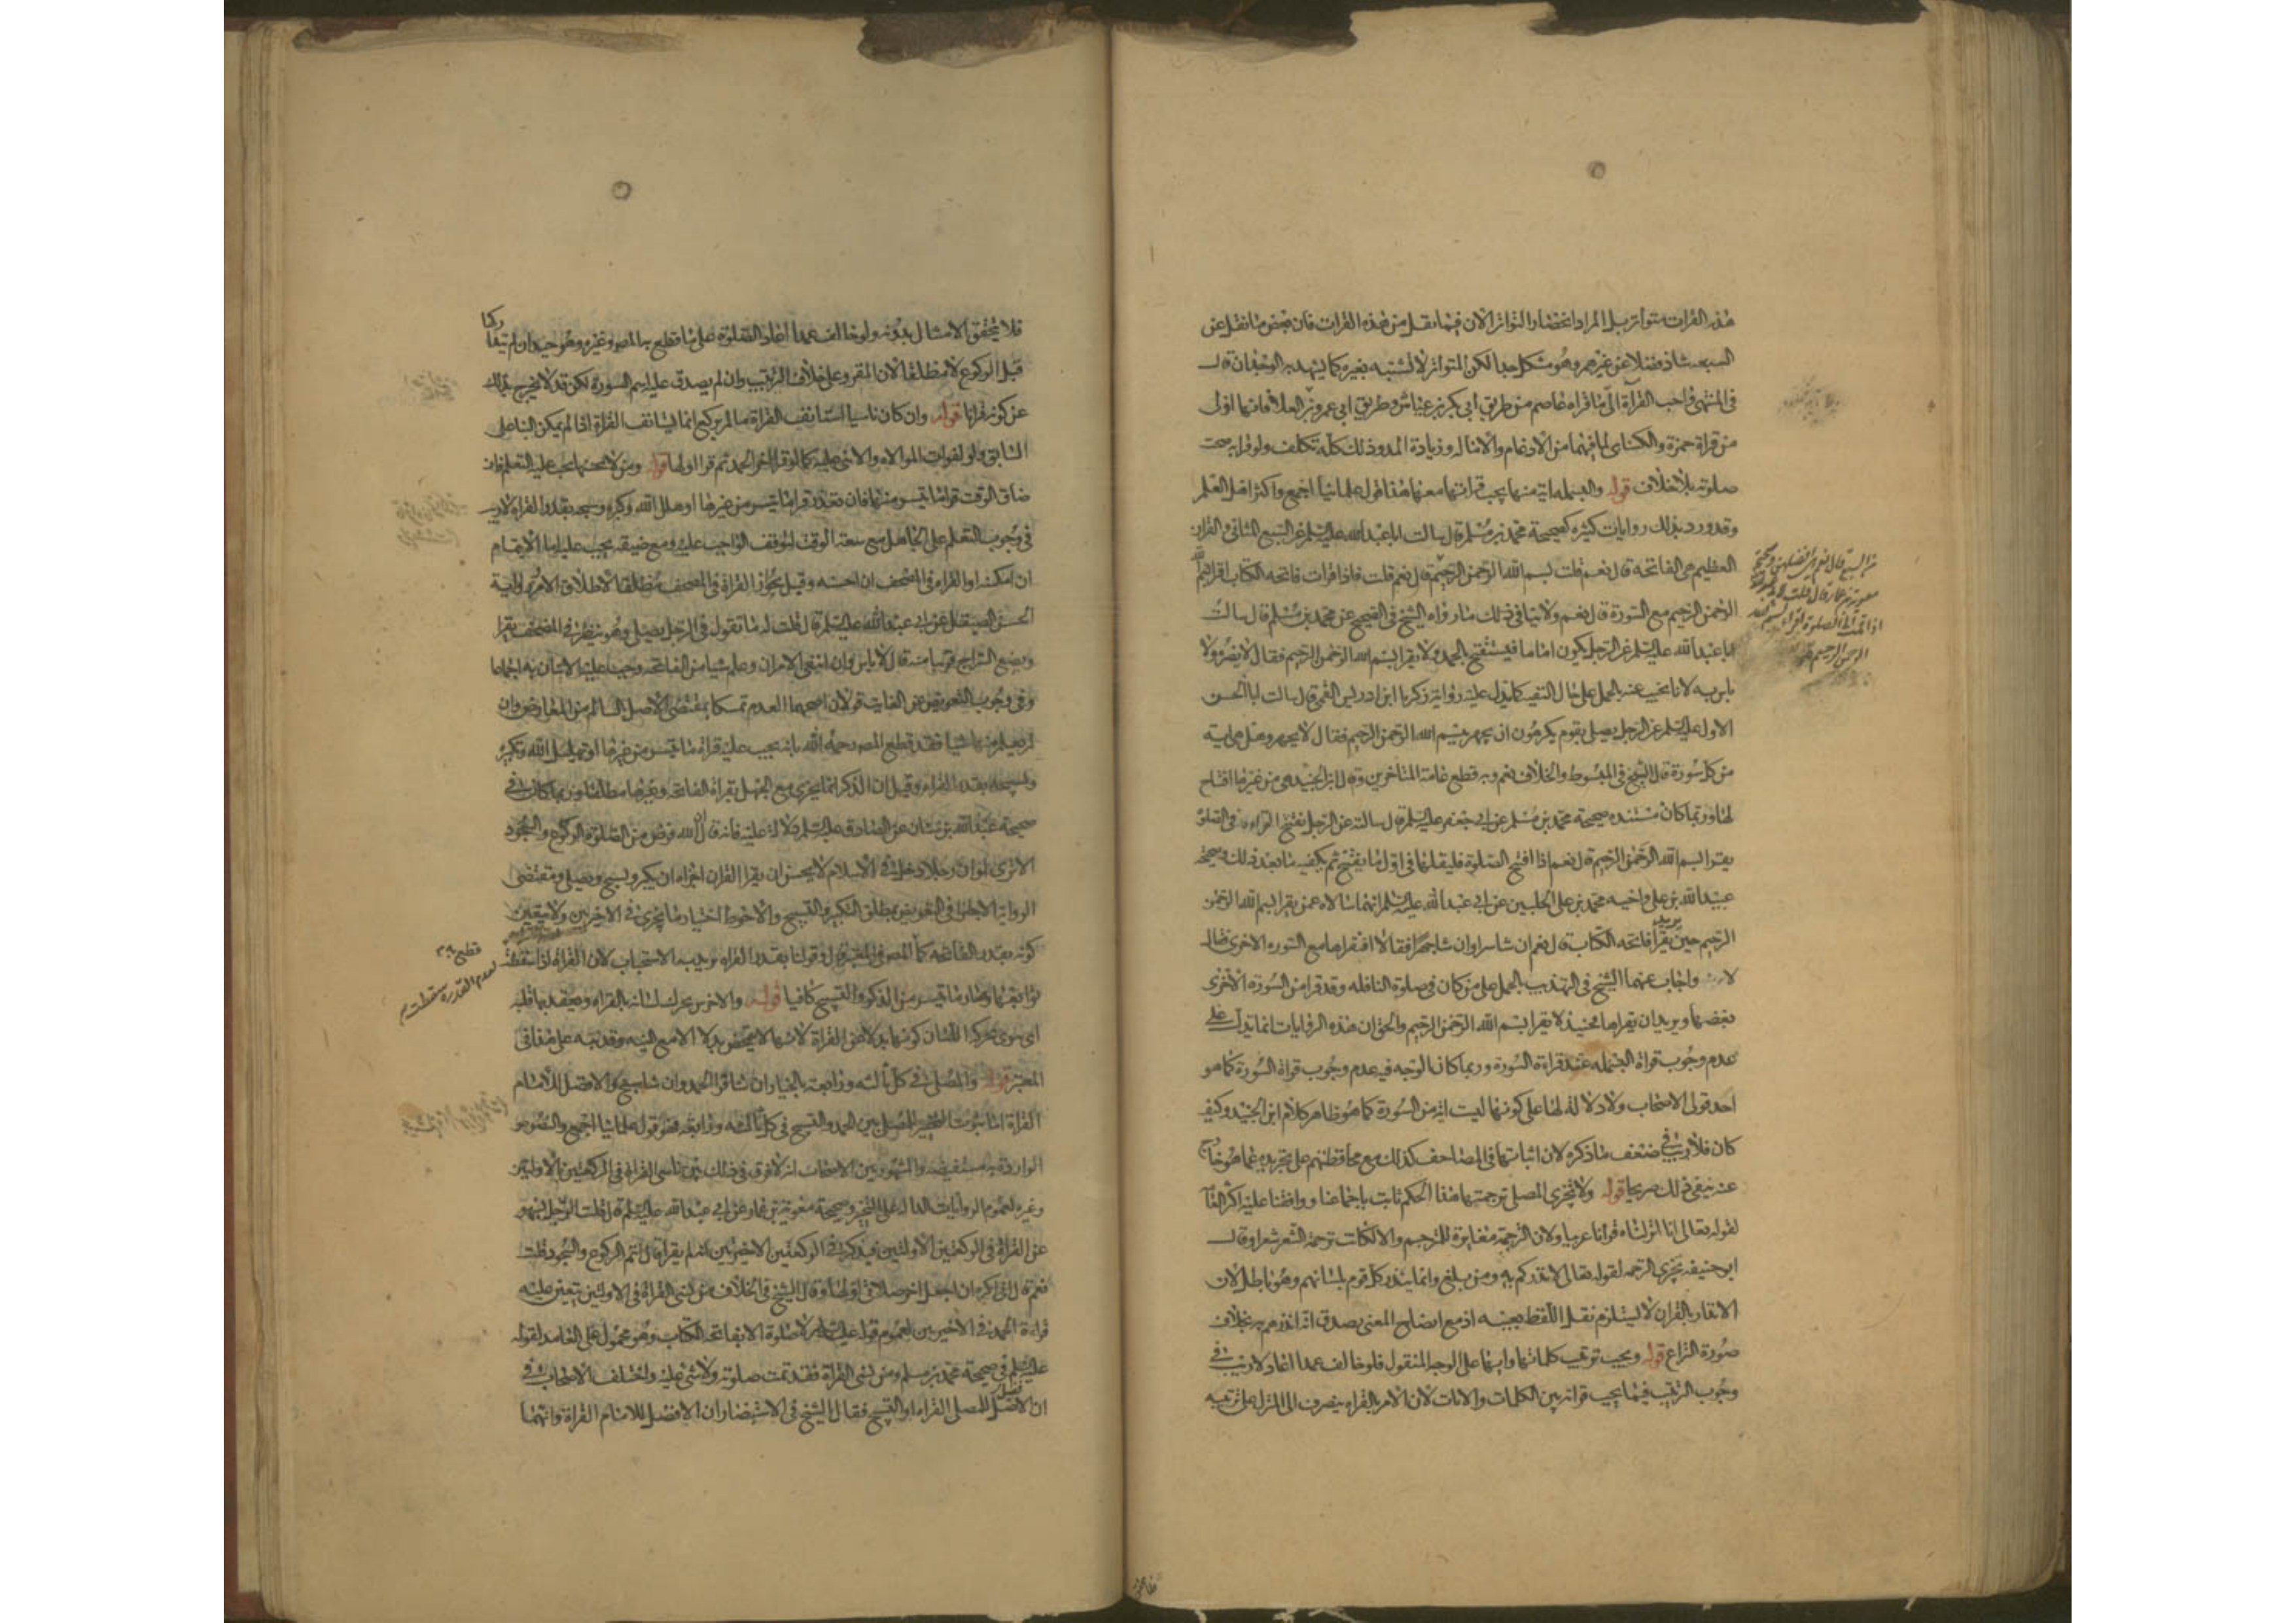 هذه القراات متواتر بل المراد انحصار التواتر الان فيما نقل من هذه القراات فان بعض ما نقل عن
السبعه شاذ فضلا عن غيرهم وهو مشكل جدا لكن المتواتر لا يشتبه بغيره كما يشهد به الوجدان قال
في المنتهى واحب القراة الى ما قراه عاصم من طريق ابي بكر بن عياش وطريق ابي عمرو بن العلا فانها اولى
من قراة حمزة والكسائي لما فيهما من الادغام والاماله وزيادة المد وذلك كله تكلف ولو قرا به صحت
صلوته بلا خلاف قوله والبسمله اية منها يجب قراتها معها هذا قول علمائنا اجمع واكثر اهل العلم
وقد ورد بذلك روايات كثيره كصحيحة محمد بن مسلم قال سالت ابا عبد الله عليه السلم عن السبع المثاني والقران
العظيم هي الفاتحة قال نعم قلت بسم الله الرحمن الرحيم قال نعم قلت فاذا قرات فاتحه الكتاب اقرا بسم الله
الرحمن الرحيم مع السورة قال نعم ولا ينافي ذلك ما رواه الشيخ في الصحيح عن محمد بن مسلم قال سالت
ابا عبد الله عليه السلم عن الرجل يكون اماما فيستفتح بالحمد ولا يقرا بسم الله الرحمن الرحيم فقال لا يضره ولا
باس به لانا نجيب عنه بالحمل على حال التقيه كما يدل عليه رواية زكريا ابن ادريس القمي قال سالت ابا الحسن
الاول عليه السلم عن الرجل يصلي بقوم يكرهون ان يجهر ببسم الله الرحمن الرحيم فقال لا يجهر وهل هي اية
من كل سورة قال الشيخ في المبسوط والخلاف نعم وبه قطع عامة المتاخرين وقال ابن الجنيد هي من غيرها افتتاح
لها وربما كان مستنده صحيحة محمد بن مسلم عن ابي جعفر عليه السلم قال سالته عن الرجل يفتتح القراءه في الصلوة
يقرا بسم الله الرحمن الرحيم قال نعم اذا افتتح الصلوة فليقلها في اول ما يفتتح ثم يكفيه ما بعد ذلك وصحيحة
عبيد الله بن علي واخيه محمد بن علي الحلبيين عن ابي عبد الله عليه السلم انهما سالاه عمن يقرا بسم الله الرحمن
الرحيم حين يريد يقرا فاتحه الكتاب قال نعم ان شا سرا وان شا جهرا فقالا افنقراها مع السوره الاخرى فقال
لا واجاب عنهما الشيخ في التهذيب بالحمل على من كان في صلوة النافله وقد قرا من السورة الاخرى
بعضها ويريد ان يقرا باقيها فحينئذ لا يقرا بسم الله الرحمن الرحيم والحق ان هذه الروايات انما تدل على
عدم وجوب قراة البسمله عند قراءة السورة وربما كان الوجه فيه عدم وجوب قراة السورة كما هو
احد قولي الاصحاب ولا دلالة لها على كونها ليست اية من السورة كما هو ظاهر كلام ابن الجنيد وكيف
كان فلا ريب في ضعف ما ذكره لان اثباتها في المصاحف كذلك مع محافظتهم على تجريده عما هو خارج
عنه ينفي ذلك صريحا قوله ولا يجزي المصلي ترجمتها هذا الحكم ثابت باجماعنا ووافقنا عليه اكثر العامة
لقوله تعالى انا انزلناه قرانا عربيا ولان الترجمة مغايرة للمترجم والا لكانت ترجمة الشعر شعرا وقال
ابو حنيفه يجزي الترجمه لقوله تعالى لانذركم به ومن بلغ وانما ينذر كل قوم بلسانهم وهو باطل لان
الانذار بالقران لا يستلزم نقل اللفظ بعينه اذ مع ايضاح المعنى يصدق انه انذرهم به بخلاف
صورة النزاع قوله ويجب ترتيب كلماتها وايها على الوجه المنقول فلو خالف عمدا اعاد لا ريب في
وجوب الترتيب فيما يجب قراته بين الكلمات والايات لان الامر بالقراه ينصرف الى المنزل على ترتيبه
فلا يتحقق الامتثال بدونه ولو خالف عمدا اعاد الصلوة على ما قطع به المصر وغيره وهو جيد ان لم يتداركها
قبل الركوع لا مطلقا لان المقرو على خلاف الترتيب وان لم يصدق عليه اسم السورة لكن قد لا يخرج بذلك
عن كونه قرانا قوله وان كان ناسيا استانف القراة ما لم يركع انما يستانف القراة اذا لم يمكن البنا على
السابق ولو لفوات الموالاه والا بنى عليه كما لو قرا اخر الحمد ثم قرا اولها قوله ومن لا يحسنها يجب عليه التعلم فان
ضاق الوقت قرا ما تيسر منها فان تعذر قرا ما تيسر من غيرها او هلل الله وكبره وسبحه بقدر القراه لا ريب
في وجوب التعلم على الجاهل مع سعة الوقت لتوقف الواجب عليه ومع ضيقه يجب عليه اما الايتمام
ان امكنه او القراه في المصحف ان احسنه وقيل بجواز القراة في المصحف مطلقا لاطلاق الامر ورواية
الحسن الصيقل عن ابي عبد الله عليه السلم قال قلت له ما تقول في الرجل يصلي وهو ينظر في المصحف يقرا
ويضع السراج قريبا منه قال لا باس وان انتفى الامران وعلم شيا من الفاتحه وجب عليه الاتيان به اجماعا
وفي وجوب التعويض عن الفايت قولان اصحهما العدم تمسكا بمقتضى الاصل السالم من المعارض وان
لم يعلم منها شيا فقد قطع المصر رحمه الله بانه يجب عليه قراة ما تيسر من غيرها او تهليل الله وتكبيره
وتسبيحه بقدر القراه وقيل ان الذكر انما يجزي مع الجهل بقراة الفاتحه وغيرها مطلقا وربما كان في
صحيحة عبد الله بن سنان عن الصادق عليه السلم دلالة عليه فانه قال ان الله فرض من الصلوة الركوع والسجود
الا ترى لو ان رجلا دخل في الاسلام لا يحسن ان يقرا القران اجزاه ان يكبر ويسبح ويصلي ومقتضى
الرواية الاجتزا في التعويض بمطلق التكبير والتسبيح والاحوط اختيار ما يجزي في الاخيرتين ولا يتعين
كونه بقدر الفاتحه كما المصر في المعتبر قال وقولنا بقدر القراه نريد به الاستحباب لان القراه اذا سقطت
توابعها وصار ما تيسر من الذكر والتسبيح كافيا قوله والاخرس يحرك لسانه بالقراه ويعقد بها قلبه
المعتبر قوله والمصلي في كل ثالثه ورابعه بالخيار ان شا قرا الحمد وان شا سبح والافضل للامام
القراة اما ثبوت التخيير للمصلي بين الحمد والتسبيح في كل ثالثه ورابعه فهو قول علمائنا اجمع والنصوص
الوارده به مستفيضه والمشهور بين الاصحاب انه لا فرق في ذلك بين ناسي القراة في الركعتين الاولتين
وغيره لعموم الروايات الداله على التخيير وصحيحة معوية بن عمار عن ابي عبد الله عليه السلم قال قلت الرجل يسهو
عن القراة في الركعتين الاولتين فيذكر في الركعتين الاخيرتين انه لم يقرا قال اتم الركوع والسجود قلت
نعم قال اني اكره ان اجعل اخر صلاتي اولها وقال الشيخ في الخلاف من نسي القراة في الاولتين يتعين عليه
قراءة الحمد في الاخيرتين لعموم قوله عليه السلم لا صلوة الا بفاتحه الكتاب وهو محمول على العامد لقوله
عليه السلم في صحيحة محمد بن مسلم ومن نسي القراة فقد تمت صلوته ولا شي عليه واختلف الاصحاب في
ان الافضل للمصلي القراه او التسبيح فقال الشيخ في الاستبصار ان الافضل للامام القراة وانهما